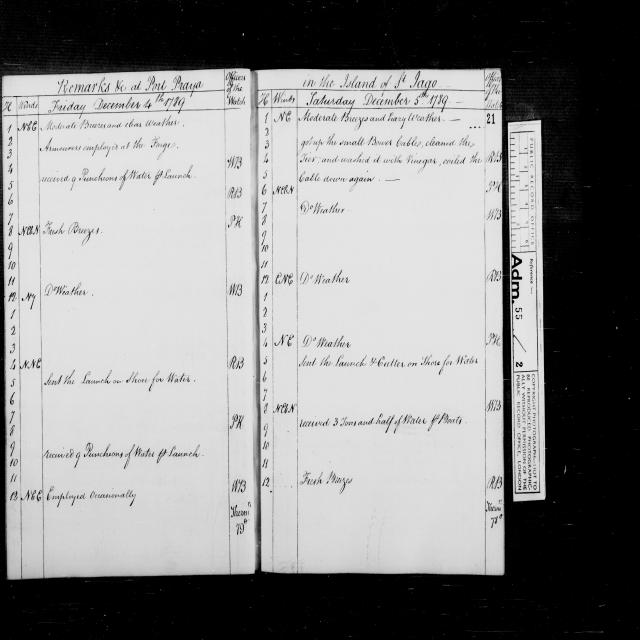 Remarks &c at Port Praya
Officers
of the
Watch
H Winds Friday December 4th 1789
1 NEE Moderate Breezes and clear Weather.
2
3 Armourers employ'd at the Forge.
4 WB
5 received 9 Puncheons of Water ft Launch.
6 RB
7
8 NEbN Fresh Breezes. PH
9
10
11
12 Do Weather. WB
1
2
3
4 NNE RB
5 Sent the Launch on Shore for Water.
6
7
8 PH
9
10 received 9 Puncheons of Water ft Launch.
11
12 NEE Employed Occasionally WB
Thermr
78°
in the Island of St Jago.
H Winds Saturday December 5th 1789
21
1 NE Moderate Breezes and Hazy Weather.
2
3 got up the small Bower Cables, cleaned the
4 Tier, and washed it with Vinegar, coiled the RB
5 Cable down again.
6 NEbN PH
7 Do Weather WB
8
9
10
11
12 ENE Do Weather RB
1
2
3
4 NE Do Weather PH
5 Sent the Launch & Cutter on Shore for Water
6
7
8 NEbN WB
9 received 3 Tons and half of Water ft Boats.
10
11
12 Fresh Breezes RB
Thermr
78°
PUBLIC RECORD OFFICE
Reference:-
Adm. 55 / 2
COPYRIGHT PHOTOGRAPH - NOT TO
BE REPRODUCED PHOTOGRAPHIC-
ALLY WITHOUT PERMISSION OF THE
PUBLIC RECORD OFFICE, LONDON